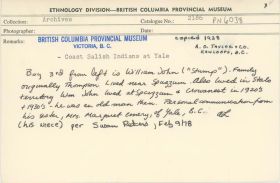 ETHNOLOGY DIVISION—BRITISH COLUMBIA PROVINCIAL MUSEUM
Collection: Archives Catalogue No.: 2186 PN6038
Photographer: Date:
Remarks: BRITISH COLUMBIA PROVINCIAL MUSEUM
VICTORIA, B. C.
copied 1928
A. C. TAYLOR & CO.
KAMLOOPS, B.C.
- Coast Salish Indians at Yale
Boy 3rd from left is William John ("Stump"). Family
originally Thompson. Lived near Spuzzum. Also lived in Stalo
territory Wm John lived at Spuzzum & in 1920's
+ 1930's - he was an old man then. Personal communication from
his sister, Mrs. Margaret Emery, of Yale, B.C.
(his niece) per Susan Peters, Feb 9/78